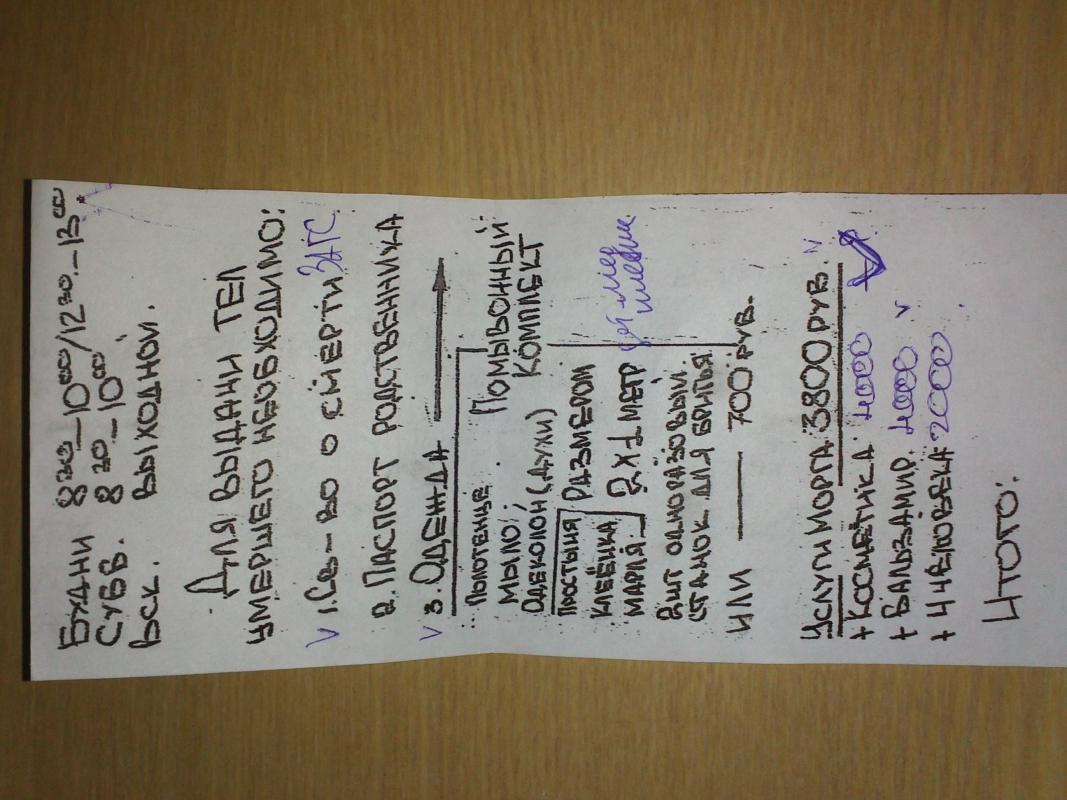 Будни 8³⁰-10⁰⁰/12³⁰-13⁰⁰.
Субб. 8³⁰-10⁰⁰
Вск. выходной.
Для выдачи тел
умершего необходимо:
v 1. Св-во о смерти ЗАГС
2. Паспорт родственника
v 3. Одежда
Полотенце.
Мыло.
Одеколон (духи)
Помывочный
комплект
Простыня
Клеёнка
Марля
размером
2х1 метр
2шт одноразовый
станок для бритья
или — 700 руб.
Услуги морга 3800 руб.
+ Косметика 4000
+ Бальзамир. 4000 v
+ 4 человека 20000
Итого: